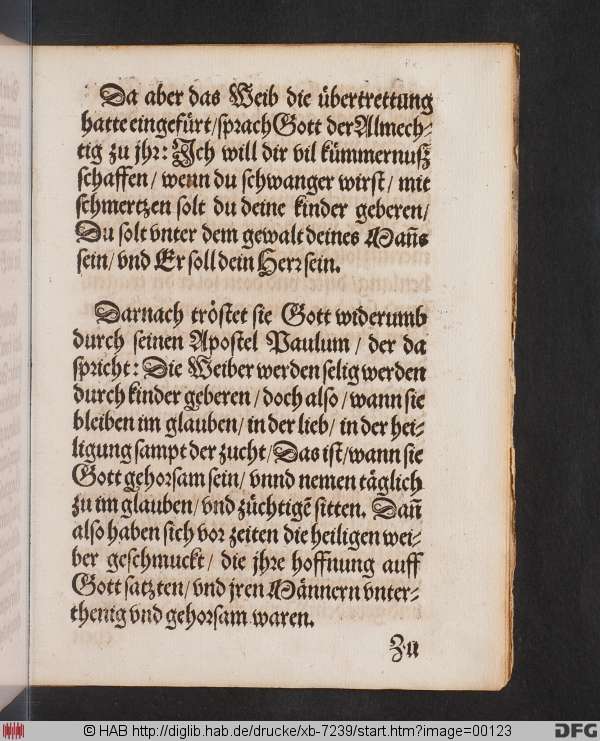 Da aber das Weib die übertrettung
hatte eingefürt/ sprach Gott der Almech-
tig zu jhr: Ich will dir vil kümmernuß
schaffen/ wenn du schwanger wirst/ mit
schmertzen solt du deine kinder geberen/
Du solt vnter dem gewalt deines Mañs
sein/ vnd Er soll dein Herr sein.
Darnach tröstet sie Gott widerumb
durch seinen Apostel Paulum/ der da
spricht: Die Weiber werden selig werden
durch kinder geberen/ doch also/ wann sie
bleiben im glauben/ in der lieb/ in der hei-
ligung sampt der zucht/ Das ist/ wann sie
Gott gehorsam sein/ vnnd nemen täglich
zu im glauben/ vnd züchtigẽ sitten. Dañ
also haben sich vor zeiten die heiligen wei-
ber geschmuckt/ die jhre hoffnung auff
Gott satzten/ vnd jren Männern vnter-
thenig vnd gehorsam waren.
Zu
© HAB http://diglib.hab.de/drucke/xb-7239/start.htm?image=00123
DFG